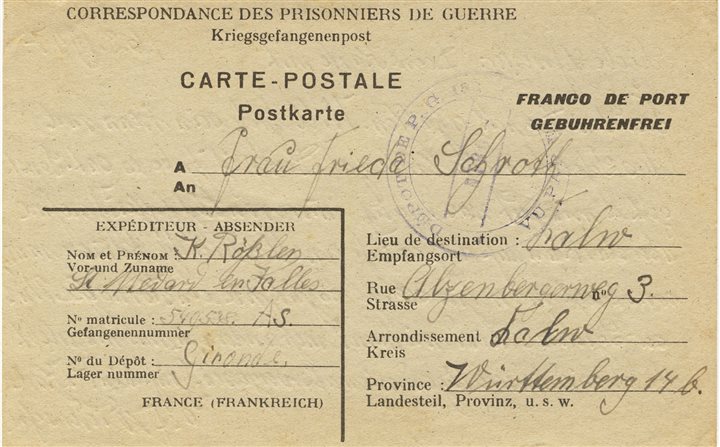 CORRESPONDANCE DES PRISONNIERS DE GUERRE
Kriegsgefangenenpost
CARTE-POSTALE
Postkarte
FRANCO DE PORT
GEBUHRENFREI
A Frau Frieda Schroth
An
DEPOT DE P.G.
EXPÉDITEUR - ABSENDER
NOM et PRÉNOM : K. Rößler
Vor-und Zuname
St Medard en Jalles
No matricule : AS.
Gefangenennummer
No du Dépôt : Gironde.
Lager nummer
FRANCE (FRANKREICH)
Lieu de destination : Calw
Empfangsort
Rue Alzenbergerweg no 3.
Strasse
Arrondissement Calw
Kreis
Province : Württemberg 14 b.
Landesteil, Provinz, u. s. w.